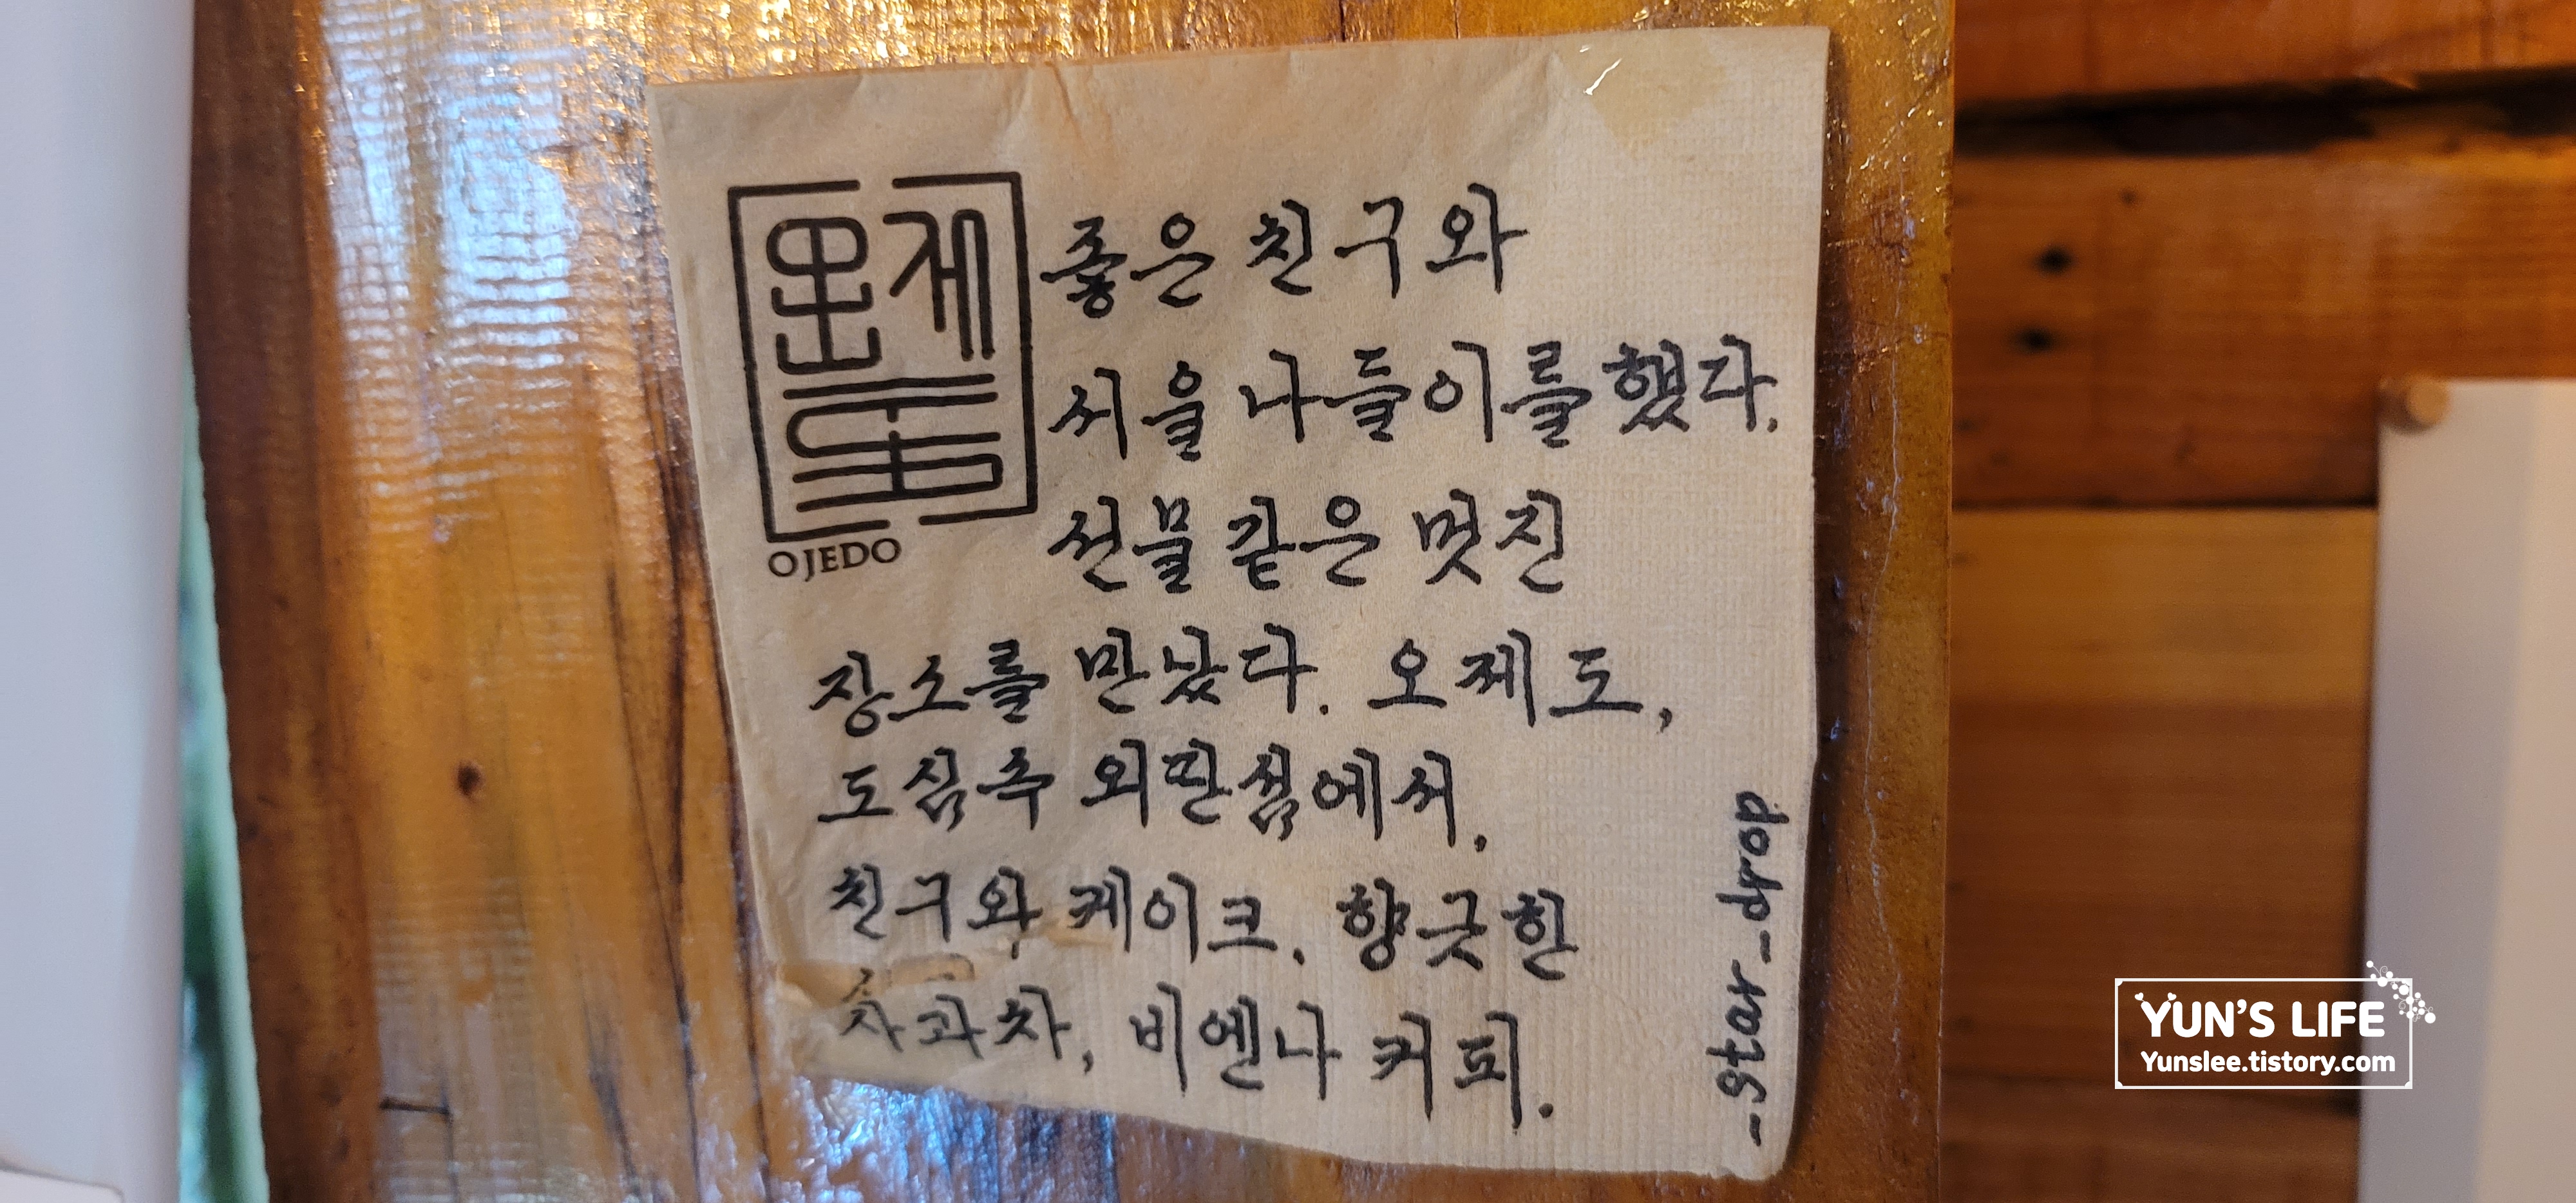 OJEDO
좋은 친구와
서울 나들이를 했다.
선물 같은 멋진
장소를 만났다. 오제도,
도심속 외딴섬에서.
친구와 케이크. 향긋한
사과차, 비엔나 커피.
-star_drop
YUN'S LIFE
Yunslee.tistory.com